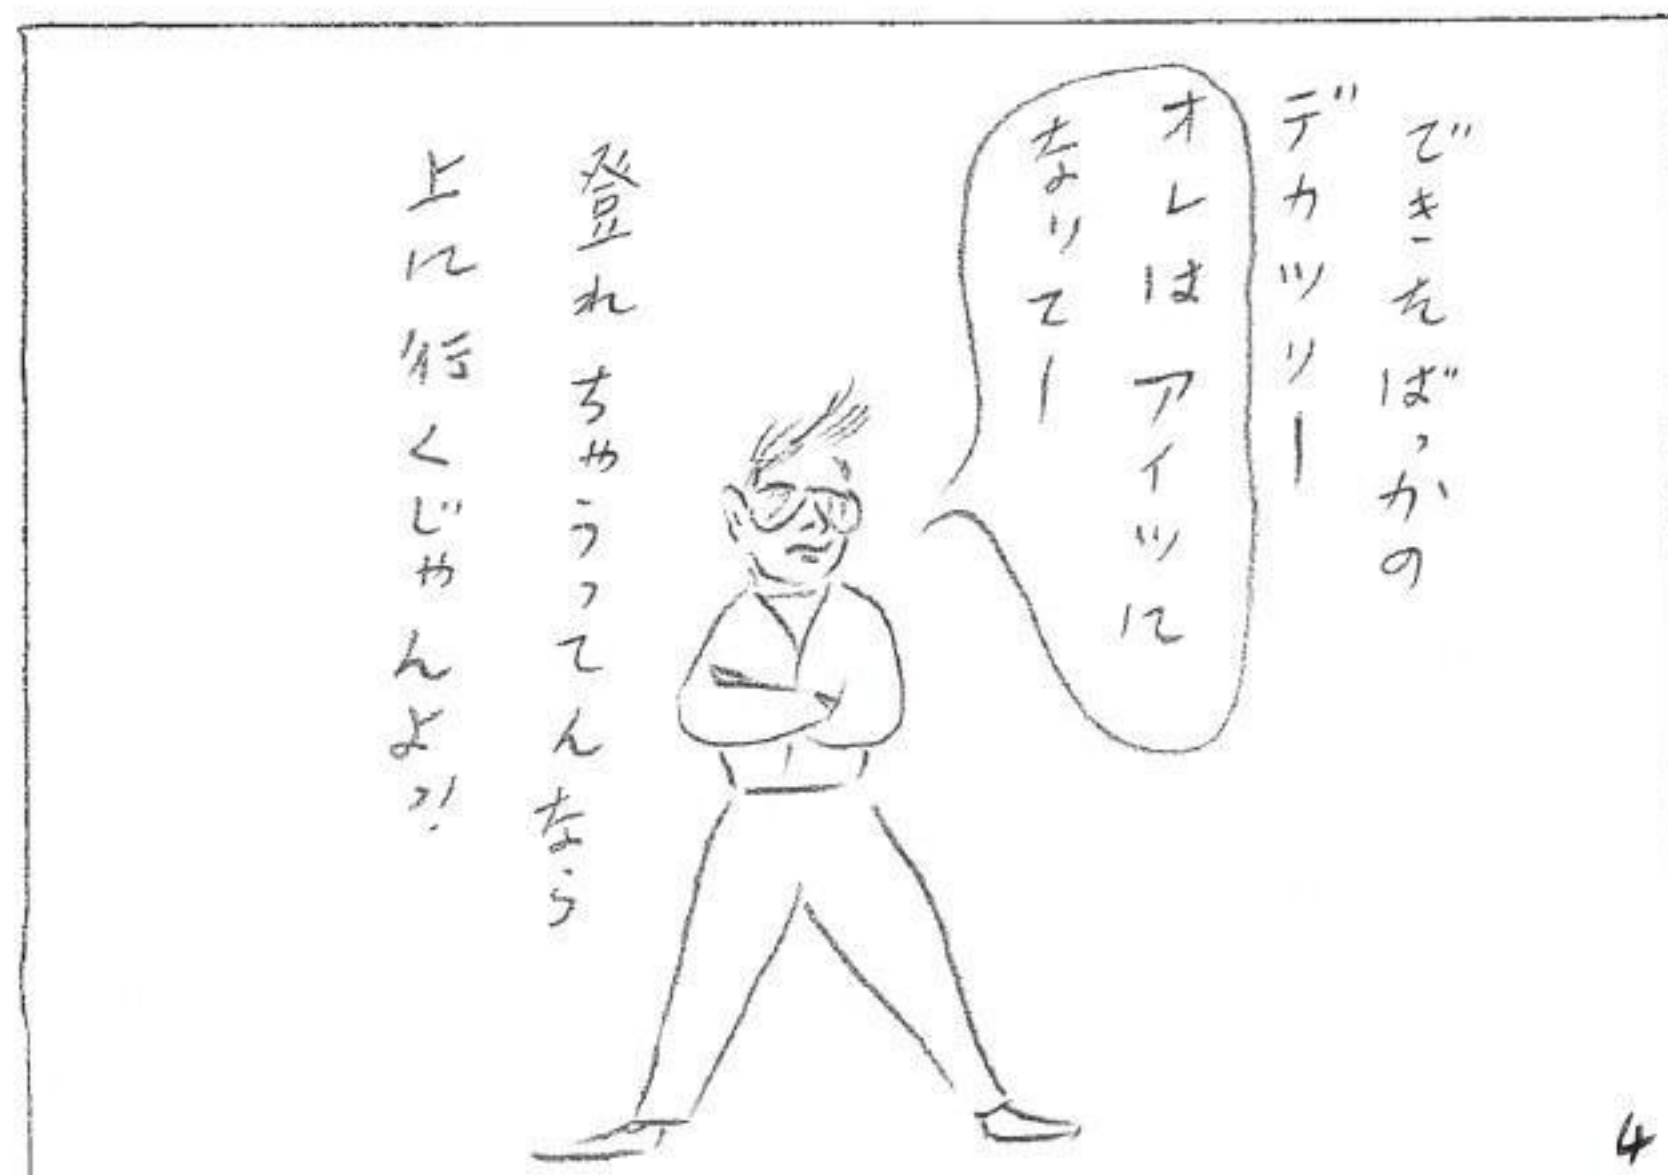 できたばっかの
デカツリー
オレはアイツに
なりてー
登れちゃうってんなら
上に行くじゃんよ?!
4